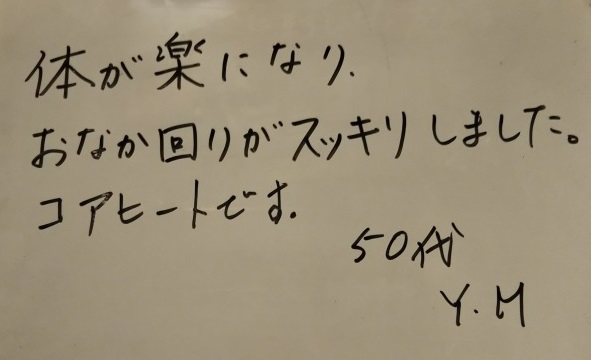 体が楽になり、
おなか回りがスッキリしました。
コアヒートです。
50代
Y.M